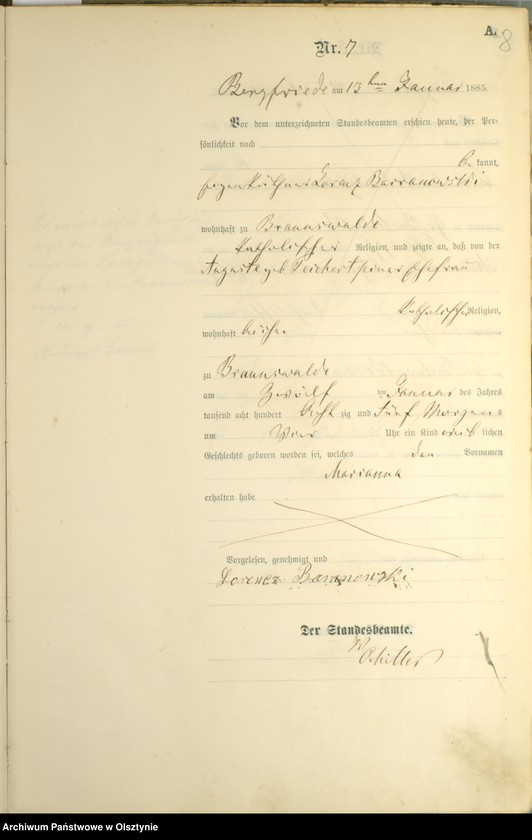 A.
8
Nr. 7
Bergfriede am 13ten Januar 1885.
Vor dem unterzeichneten Standesbeamten erschien heute, der Per-
sönlichkeit nach
be kannt,
Lorenz Barranowski
wohnhaft zu Braunswalde
katholischer Religion, und zeigte an, daß von der
Auguste geb Teichert seiner Ehefrau
katholischer Religion,
wohnhaft bei ihm
zu Braunswalde
am Zwölf ten Januar des Jahres
tausend acht hundert Acht zig und Fünf Morgens
um Vier Uhr ein Kind weib lichen
Geschlechts geboren worden sei, welches den Vornamen
Marianna
erhalten habe
Vorgelesen, genehmigt und
Lorenz Baranowski
Der Standesbeamte.
Archiwum Państwowe w Olsztynie